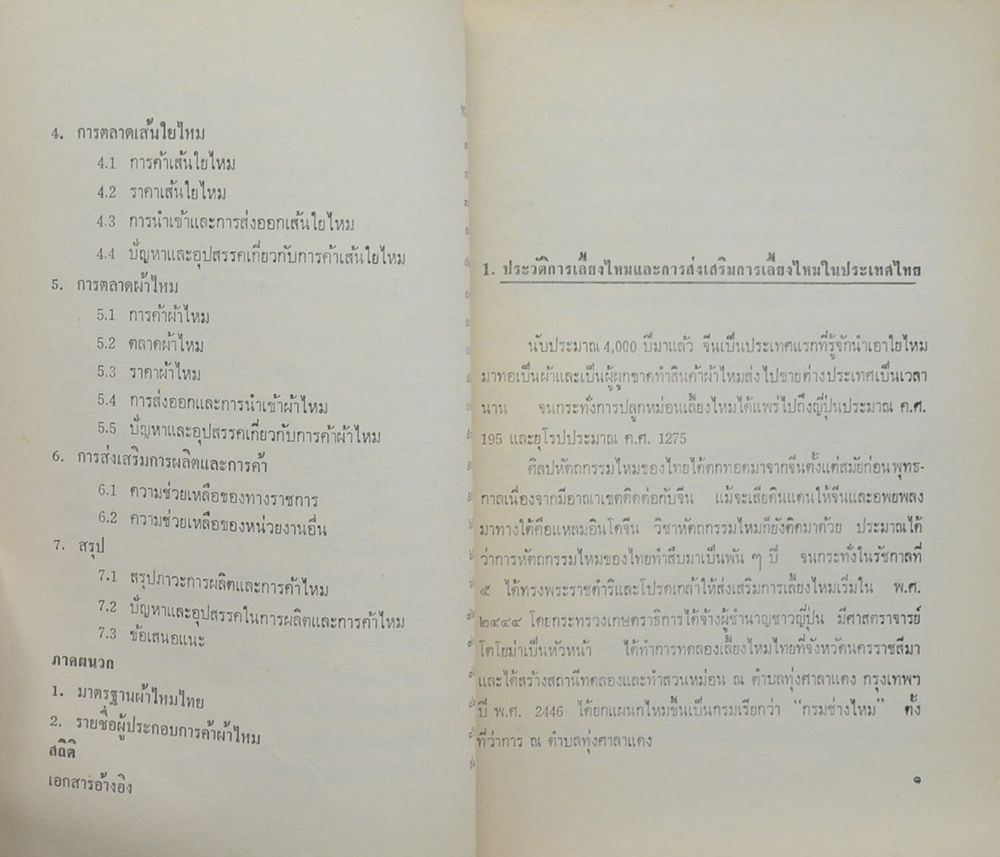 4. การตลาดเส้นใยไหม
4.1 การค้าเส้นใยไหม
4.2 ราคาเส้นใยไหม
4.3 การนำเข้าและการส่งออกเส้นใยไหม
4.4 ปัญหาและอุปสรรคเกี่ยวกับการค้าเส้นใยไหม
5. การตลาดผ้าไหม
5.1 การค้าผ้าไหม
5.2 ตลาดผ้าไหม
5.3 ราคาผ้าไหม
5.4 การส่งออกและการนำเข้าผ้าไหม
5.5 ปัญหาและอุปสรรคเกี่ยวกับการค้าผ้าไหม
6. การส่งเสริมการผลิตและการค้า
6.1 ความช่วยเหลือของทางราชการ
6.2 ความช่วยเหลือของหน่วยงานอื่น
7. สรุป
7.1 สรุปภาวะการผลิตและการค้าไหม
7.2 ปัญหาและอุปสรรคในการผลิตและการค้าไหม
7.3 ข้อเสนอแนะ
ภาคผนวก
1. มาตรฐานผ้าไหมไทย
2. รายชื่อผู้ประกอบการค้าผ้าไหม
สถิติ
เอกสารอ้างอิง
1. ประวัติการเลี้ยงไหมและการส่งเสริมการเลี้ยงไหมในประเทศไทย
นับประมาณ 4,000 ปีมาแล้ว จีนเป็นประเทศแรกที่รู้จักนำเอาใยไหม
มาทอเป็นผ้าและเป็นผู้ผูกขาดทำสินค้าผ้าไหมส่งไปขายต่างประเทศเป็นเวลา
นาน จนกระทั่งการปลูกหม่อนเลี้ยงไหมได้แพร่ไปถึงญี่ปุ่นประมาณ ค.ศ.
195 และยุโรปประมาณ ค.ศ. 1275
ศิลปหัตถกรรมไหมของไทยได้ตกทอดมาจากจีนตั้งแต่สมัยก่อนพุทธ-
กาลเนื่องจากมีอาณาเขตติดต่อกับจีน แม้จะเสียดินแดนให้จีนและอพยพลง
มาทางใต้คือแหลมอินโดจีน วิชาหัตถกรรมไหมก็ยังติดมาด้วย ประมาณได้
ว่าการหัตถกรรมไหมของไทยทำสืบมาเป็นพัน ๆ ปี จนกระทั่งในรัชกาลที่
๕ ได้ทรงพระราชดำริและโปรดเกล้าให้ส่งเสริมการเลี้ยงไหมเริ่มใน พ.ศ.
๒๔๔๔ โดยกระทรวงเกษตราธิการได้จ้างผู้ชำนาญชาวญี่ปุ่น มีศาสตราจารย์
โตโยม่าเป็นหัวหน้า ได้ทำการทดลองเลี้ยงไหมไทยที่จังหวัดนครราชสีมา
และได้สร้างสถานีทดลองและทำสวนหม่อน ณ ตำบลทุ่งศาลาแดง กรุงเทพฯ
ปี พ.ศ. 2446 ได้ยกแผนกไหมขึ้นเป็นกรมเรียกว่า "กรมช่างไหม" ตั้ง
ที่ว่าการ ณ ตำบลทุ่งศาลาแดง
๑